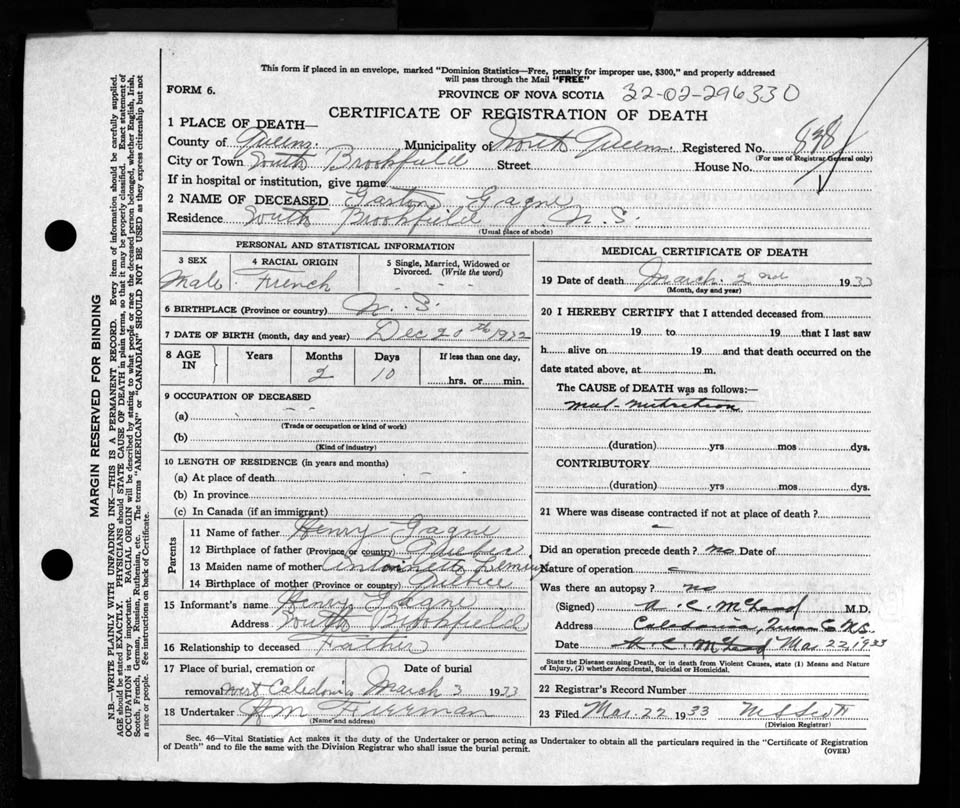 This form if placed in an envelope, marked "Dominion Statistics—Free, penalty for improper use, $300," and properly addressed
will pass through the Mail "FREE"
FORM 6.
PROVINCE OF NOVA SCOTIA 32-02-296330
CERTIFICATE OF REGISTRATION OF DEATH
1 PLACE OF DEATH—
County of Queens. Municipality of North Queens. Registered No. 838
(For use of Registrar General only)
City or Town South Brookfield Street House No.
If in hospital or institution, give name
2 NAME OF DECEASED Gaston Gagne
Residence South Brookfield N.S.
(Usual place of abode)
PERSONAL AND STATISTICAL INFORMATION
3 SEX 4 RACIAL ORIGIN 5 Single, Married, Widowed or
Divorced. (Write the word)
Male. French
6 BIRTHPLACE (Province or country) N.S.
7 DATE OF BIRTH (month, day and year) Dec 20th 1932
8 AGE IN Years Months Days If less than one day,
2 10 hrs. or min.
9 OCCUPATION OF DECEASED
(a)
(Trade or occupation or kind of work)
(b)
(Kind of industry)
10 LENGTH OF RESIDENCE (in years and months)
(a) At place of death
(b) In province
(c) In Canada (if an immigrant)
Parents
11 Name of father Henry Gagne
12 Birthplace of father (Province or country) Quebec
13 Maiden name of mother Antoinette
14 Birthplace of mother (Province or country)
15 Informant's name Henry Gagne
Address South Brookfield
16 Relationship to deceased Father
17 Place of burial, cremation or Date of burial
removal West Caledonia March 3 1933
18 Undertaker HM Freeman
(Name and address)
MEDICAL CERTIFICATE OF DEATH
19 Date of death March 2nd 1933
(Month, day and year)
20 I HEREBY CERTIFY that I attended deceased from
19 to 19 that I last saw
h alive on 19 and that death occurred on the
date stated above, at m.
The CAUSE of DEATH was as follows:—
mal-nutrition
(duration) yrs mos dys.
CONTRIBUTORY
(duration) yrs mos dys.
21 Where was disease contracted if not at place of death?
Did an operation precede death? no Date of
Nature of operation
Was there an autopsy? no
(Signed) A. C. McLeod M.D.
Address Caledonia, Queens Co N.S.
Date A C McLeod Mar 22 1933
State the Disease causing Death, or in death from Violent Causes, state (1) Means and Nature
of Injury, (2) whether Accidental, Suicidal or Homicidal.
22 Registrar's Record Number
23 Filed Mar 22 1933
(Division Registrar)
Sec. 46—Vital Statistics Act makes it the duty of the Undertaker or person acting as Undertaker to obtain all the particulars required in the "Certificate of Registration
of Death" and to file the same with the Division Registrar who shall issue the burial permit.
(OVER)
MARGIN RESERVED FOR BINDING
N.B.—WRITE PLAINLY WITH UNFADING INK—THIS IS A PERMANENT RECORD. Every item of information should be carefully supplied.
AGE should be stated EXACTLY. PHYSICIANS should STATE CAUSE OF DEATH in plain terms, so that it may be properly classified. Exact statement of
OCCUPATION is very important. RACIAL ORIGIN will be described by stating to what people or race the deceased person belonged, whether English, Irish,
Scotch, French, German, Russian, Ruthenian, etc. The terms "AMERICAN" or "CANADIAN" SHOULD NOT BE USED as they express citizenship but not
a race or people. Fee instructions on back of Certificate.